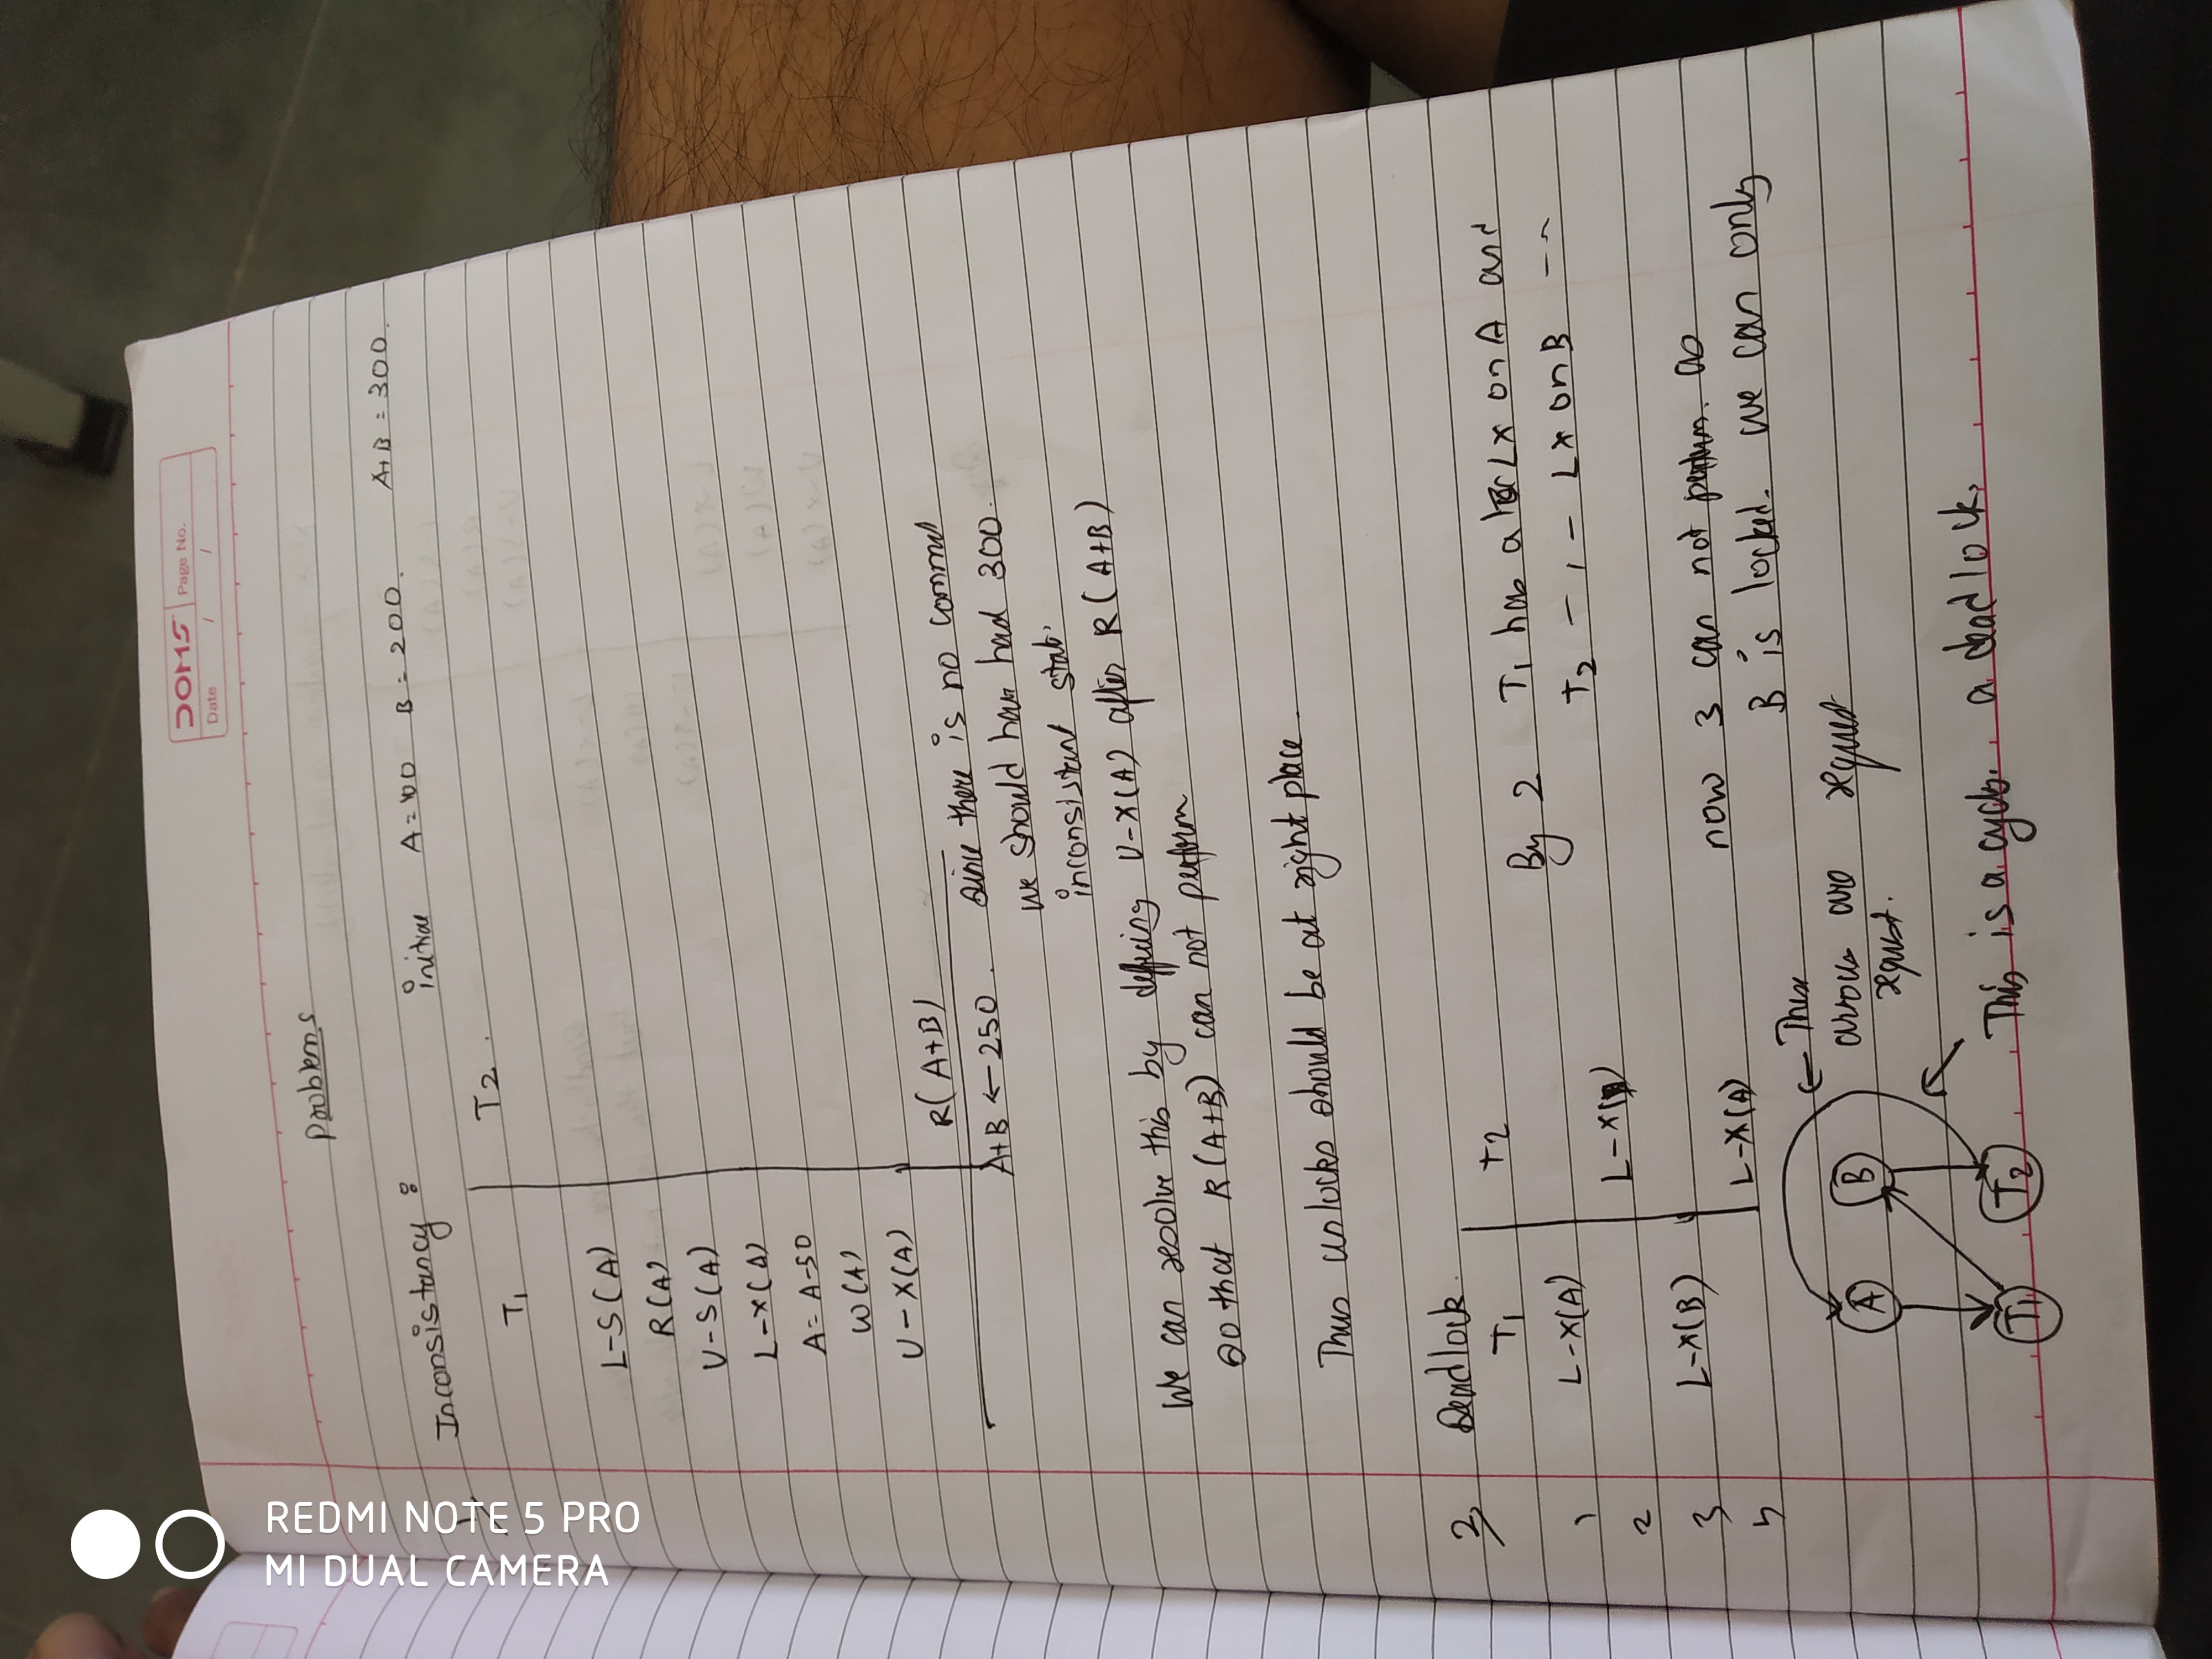 DOMS
Page No.
Date / /
Problems
1) Inconsistancy : initial A=100 B=200. A+B=300.
T1 T2.
L-S(A)
R(A)
U-S(A)
L-X(A)
A=A-50
W(A)
U-X(A)
R(A+B)
A+B ← 250. since there is no commit
we should have had 300.
inconsistent stat.
We can resolve this by defining U-X(A) after R(A+B)
so that R(A+B) can not perform
Thus unlocks should be at right place.
2) Deadlock.
T1 T2 By 2 T1 has a LX on A and
1 L-X(A) T2 - , - LX on B -~
2 L-X(B)
3 L-X(B) now 3 can not perform. as
4 L-X(A) B is locked. we can only
request
← These
arrows are
request.
A B
T1 T2
This is a cycle. a deadlock.
REDMI NOTE 5 PRO
MI DUAL CAMERA